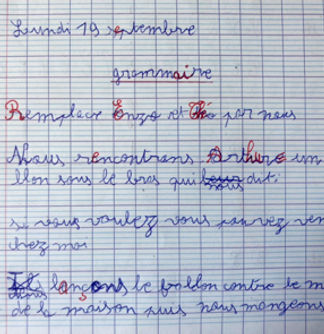 Lundi 19 septembre
grammaire
Remplace Enzo et Théo par nous
Nous rencontrons Arthure un
llon sous le bras qui leur nous dit:
si vous voulez vous pouvez ven
chez moi
Ils nous lançons le ballon contre le m
de la maison puis nous mangeons